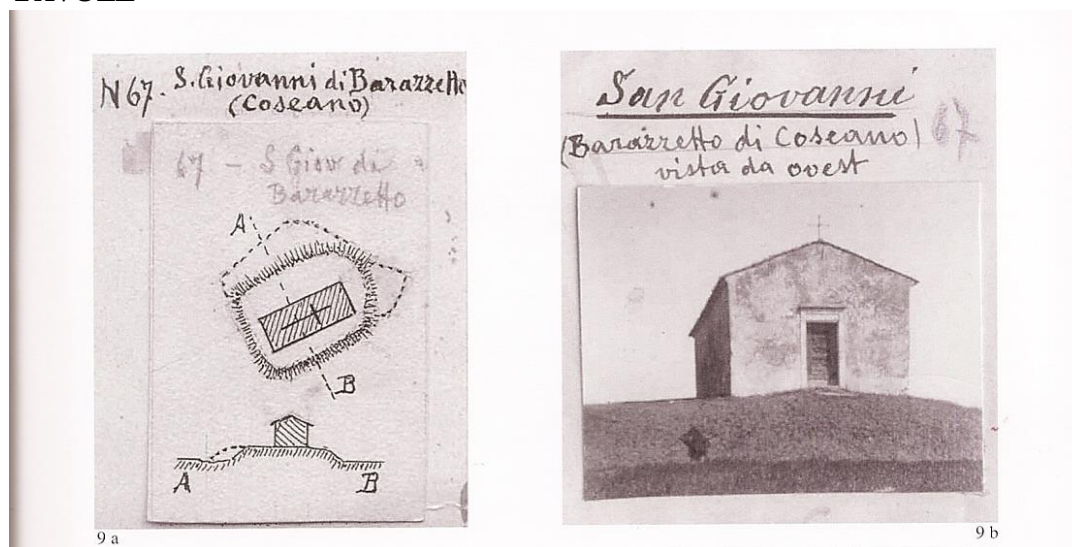 N 67. S. Giovanni di Barazzetto
(Coseano)
67 - S Giov di
Barazzetto
A
B
A B
9 a
San Giovanni
(Barazzetto di Coseano) 67
vista da ovest
9 b